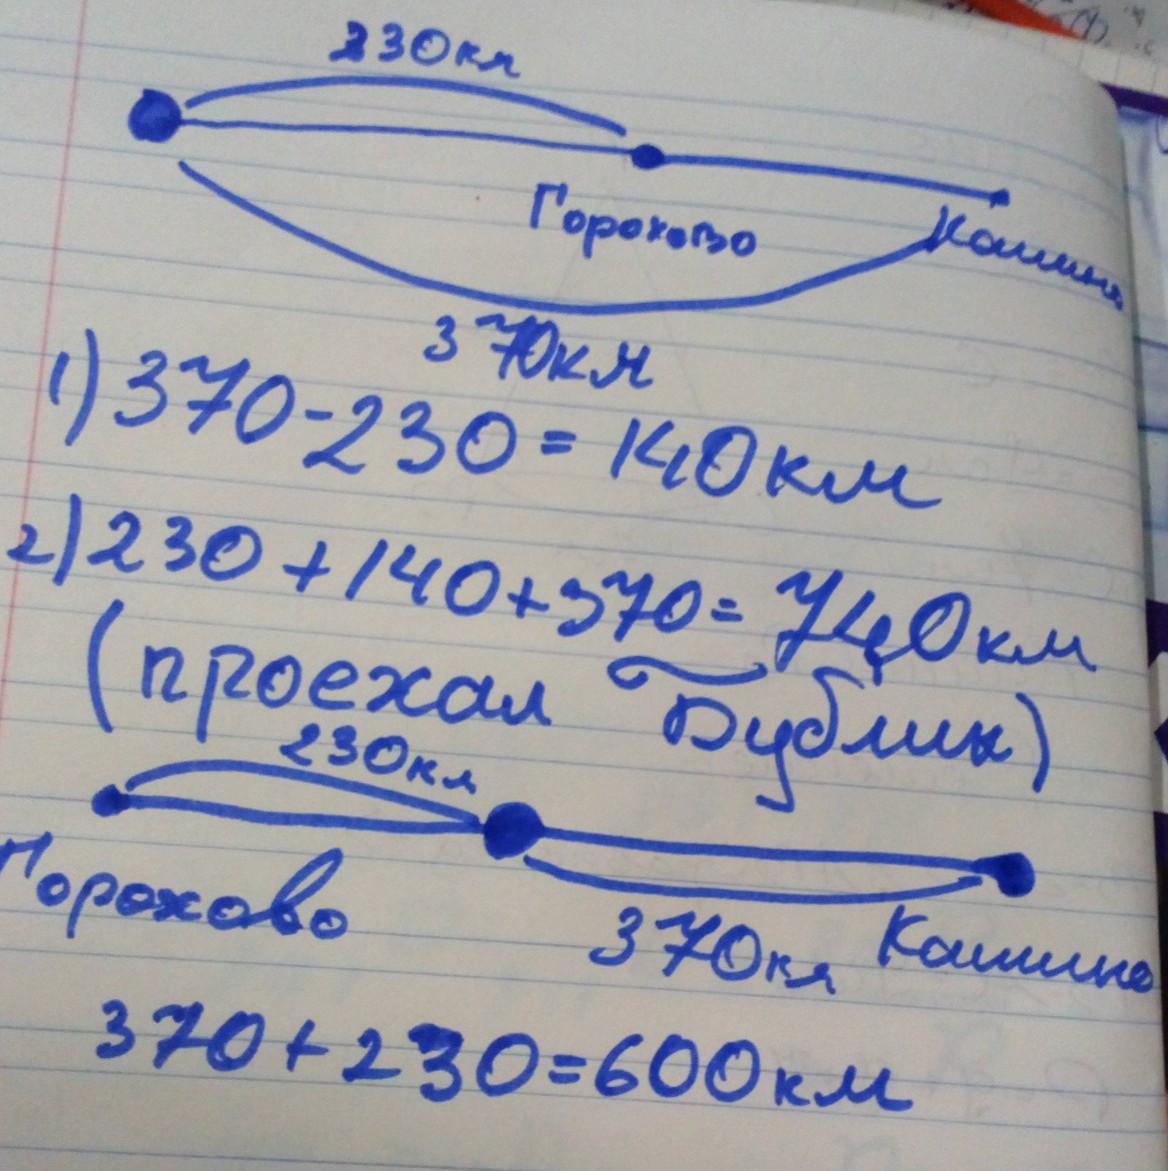 230км
Горохово
Кашино
370км
1) 370-230 = 140км
2) 230 + 140 + 370 = 740км
(проехал Бублик)
230км
Горохово
370км
Кашино
370 + 230 = 600км